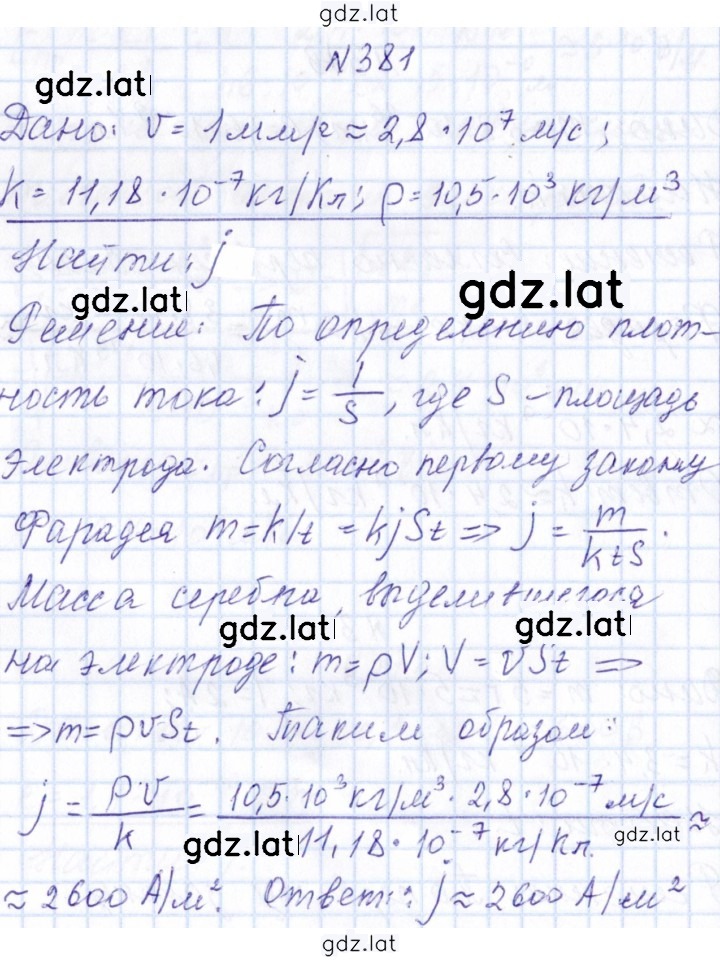 gdz.lat
N381
gdz.lat
Дано: v = 1 мм/c ≈ 2,8 · 10⁷ м/с;
k = 11,18 · 10⁻⁷ кг/Кл; ρ = 10,5 · 10³ кг/м³
Найти: j
gdz.lat
gdz.lat
Решение: По определению плот-
ность тока: j = I/S, где S – площадь
электрода. Согласно первому закону
Фарадея m = kIt = kjSt => j = m/ktS.
Масса серебра, выделившегося
gdz.lat
gdz.lat
на электроде: m = ρV; V = vSt =>
=> m = ρvSt. Таким образом:
j = ρ·v/k = 10,5·10³ кг/м³ · 2,8 · 10⁻⁷ м/с / 11,18 · 10⁻⁷ кг/Кл ≈
gdz.lat
gdz.lat
≈ 2600 А/м². Ответ: j ≈ 2600 А/м²
gdz.lat